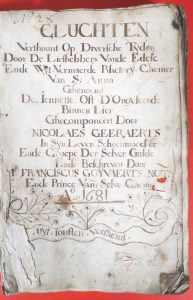 CLUCHTEN
Verthoont Op Diversche Tyden
Door De Liefhebbers Vande Edele
Ende Wyt Vermaerde Rhetory Caemer
Van S. Anna
Ghenoemt
De Iennette Oft D'Ongeleerde
Binnen Lier
Ghecomponeert Door
NICOLAES GEERAERTS
In Syn Leven Schoenmaecker
Ende Knaepe Der Selver Gulde
Ende Beschreven Door
FRANCISCUS GOYVAERTS NOTS
Ende Prince Van Selve Caemer
Ao 1681
uyt Jonsten Versaemt